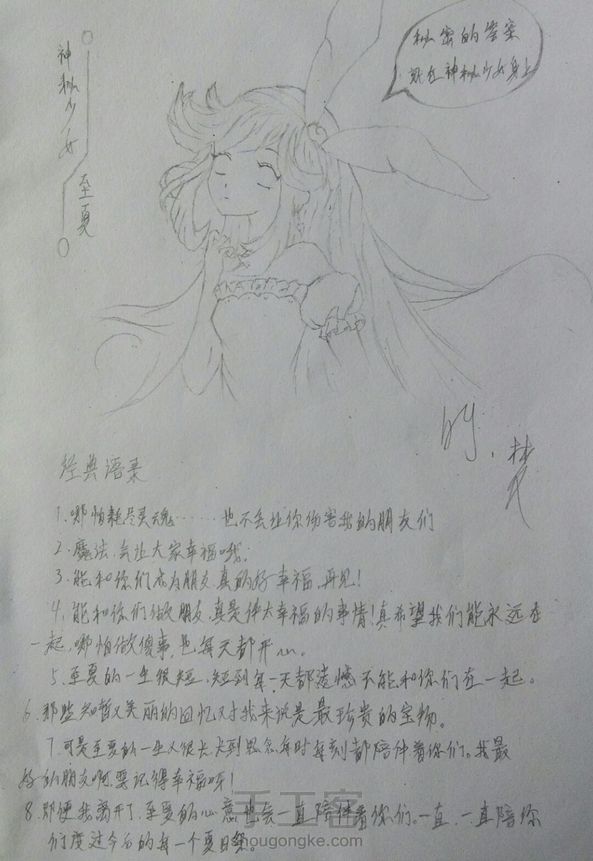 神秘少女
至夏
秘密的答案
就在神秘少女身上
by.梦
经典语录
1.哪怕耗尽灵魂……也不会让你伤害我的朋友们
2.魔法,会让大家幸福哦.
3.能和你们成为朋友,真的好幸福,再见!
4.能和你们做朋友,真是伟大幸福的事情!真希望我们能永远在
一起,哪怕做傻事,也每天都开心。
5.至夏的一生很短,短到每一天都遗憾不能和你们在一起。
6.那些短暂又美丽的回忆对我来说是最珍贵的宝物。
7.可是至夏的一生又很长,长到思念每时每刻都陪伴着你们。我最
好的朋友啊,要记得幸福呀!
8.即便我离开了,至夏的心意也会一直陪伴着你们。一直,一直陪你
们度过今后的每一个夏日祭。
手工客
shougongke.com